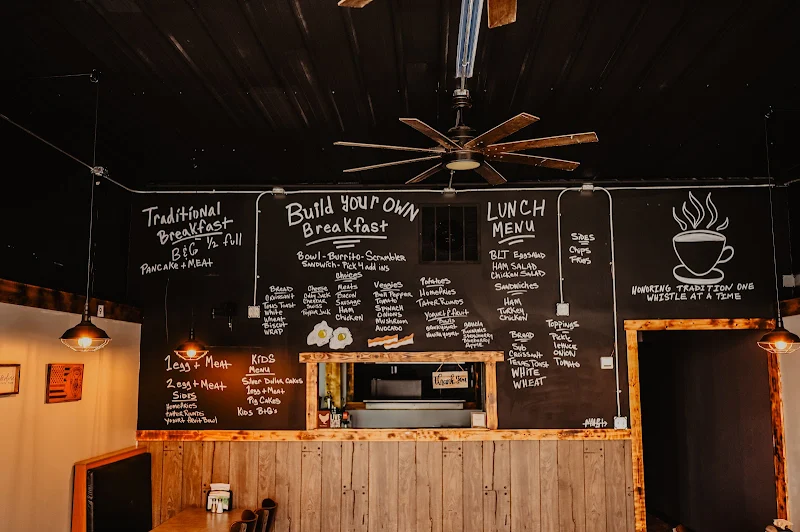 Traditional
Breakfast
B&G ½ full
Pancake + Meat
1 egg + Meat
2 egg + Meat
Sides
HomeFries
Tater Rounds
Yogurt Fruit Bowl
Kids
Menu
Silver Dollar Cakes
1 egg + Meat
Pig Cakes
Kids B+G's
Build Your Own
Breakfast
Bowl - Burrito - Scrambler
Sandwich - Pick 4 add ins
Choices
Bread
Croissant
Texas Toast
White
Wheat
Biscuit
Wrap
Cheese
Colby Jack
Cheddar
Swiss
Meats
Bacon
Sausage
Ham
Chicken
Veggies
Bell Pepper
Tomato
Spinach
Onions
Mushroom
Avocado
Potatoes
HomeFries
Tater Rounds
Yogurt Fruit
Bowls
Vanilla Yogurt
Granola
Strawberry
Blueberry
Apple
LUNCH
MENU
BLT Eggsalad
Ham Salad
Chicken Salad
Sandwiches
Ham
Turkey
Chicken
Bread
Sub
Croissant
Texas Toast
White
Wheat
Sides
Chips
Fries
Toppings
Pickle
Lettuce
Onion
Tomato
Honoring Tradition One
Whistle at a Time